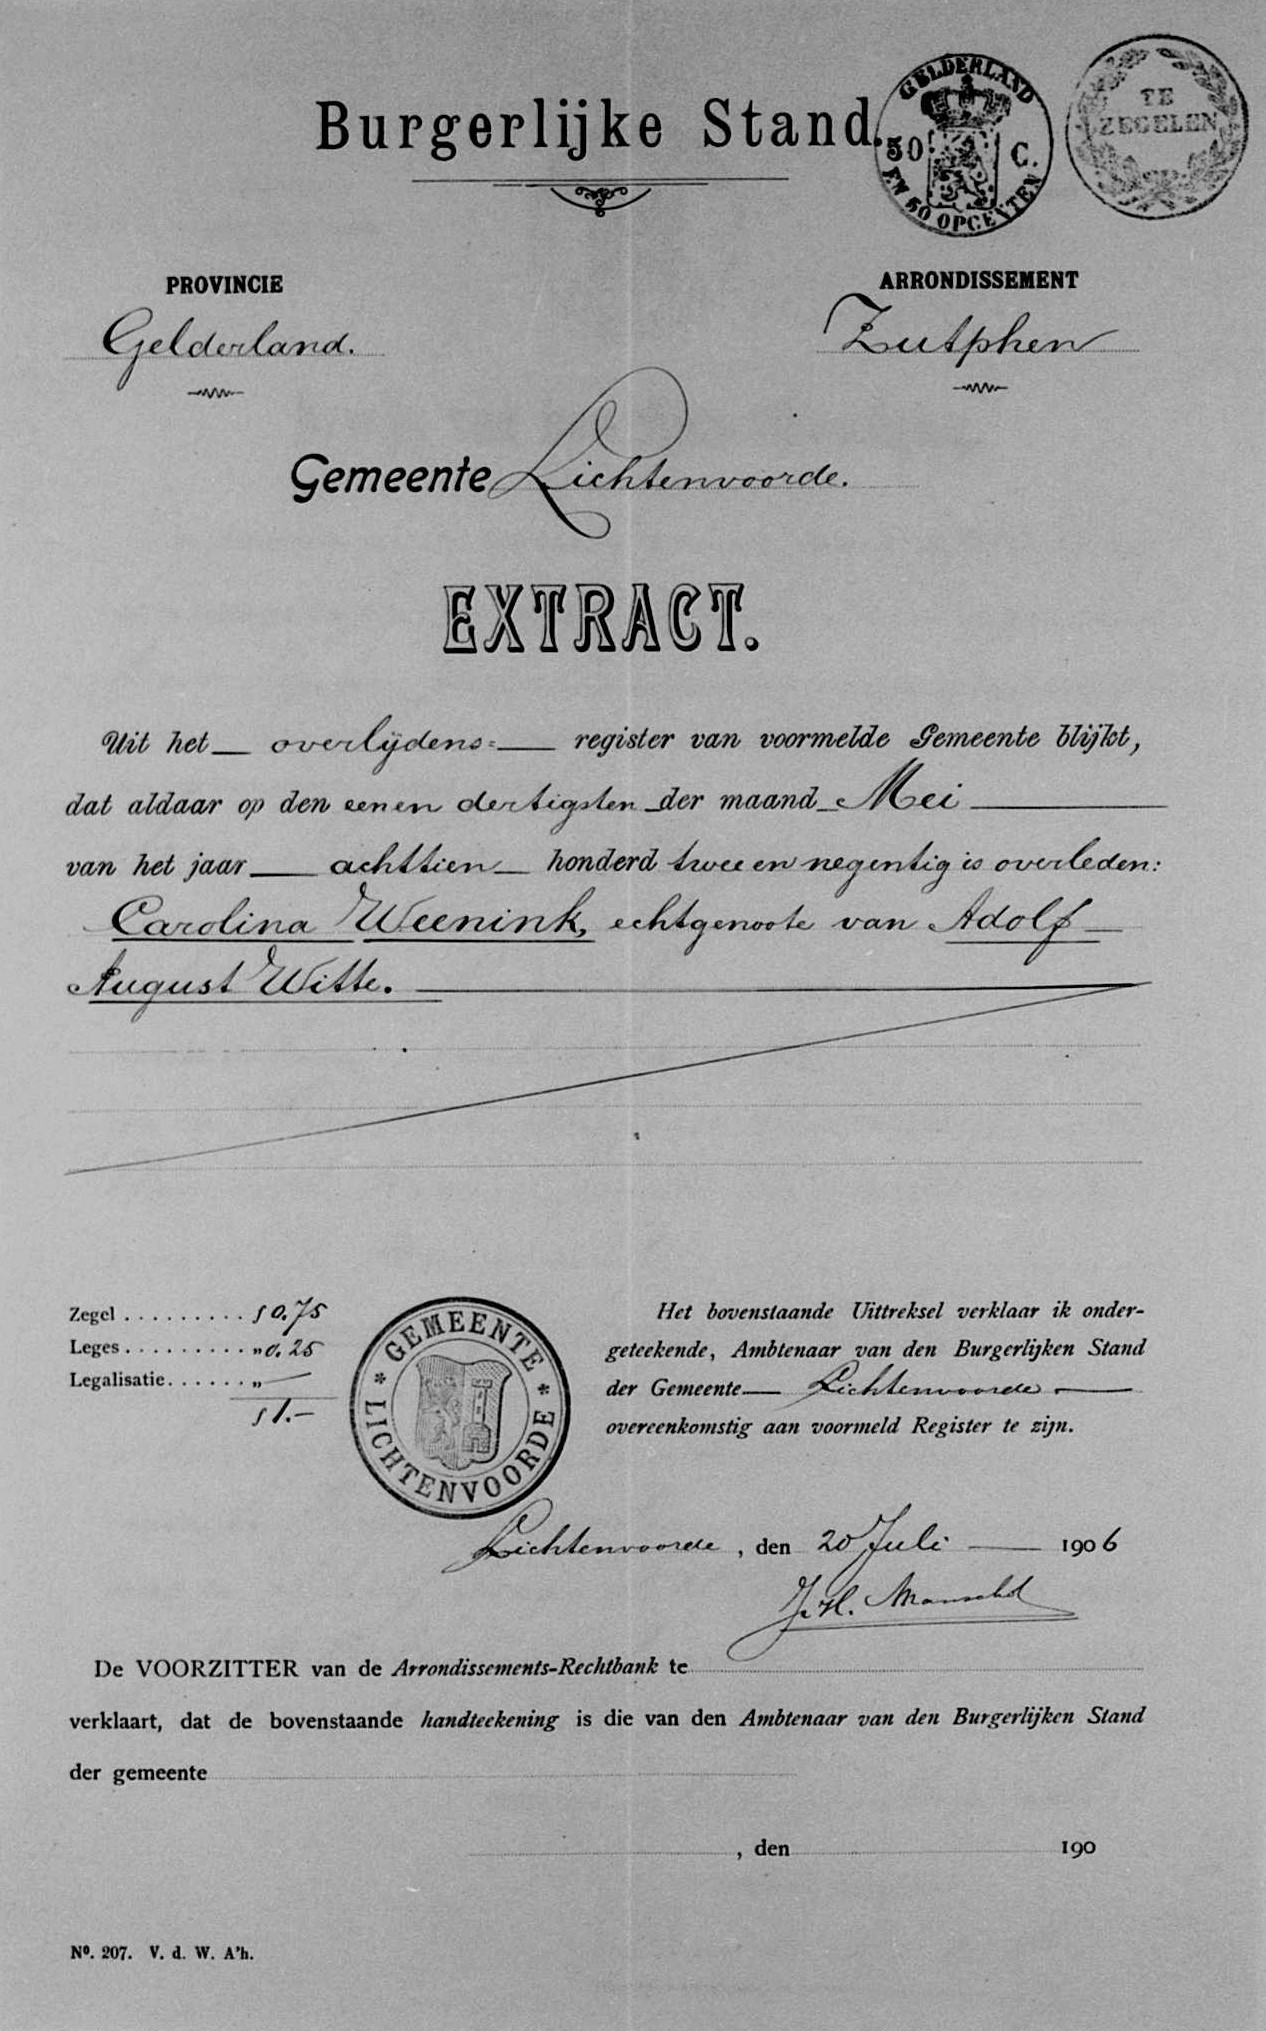 Burgerlijke Stand.
GELDERLAND
50 C.
EN 50 OPCENTEN
TE
ZEGELEN
PROVINCIE
ARRONDISSEMENT
Gelderland.
Zutphen
Gemeente Lichtenvoorde.
EXTRACT.
Uit het overlijdens= register van voormelde Gemeente blijkt,
dat aldaar op den eenen dertigsten der maand Mei
van het jaar achttien honderd twee en negentig is overleden:
Carolina Weenink, echtgenoote van Adolf
August Witte.
Zegel . . . . . . . . . . f 0.75
Leges . . . . . . . . . . „ 0.25
Legalisatie. . . . . . . „ —
f 1.—
* GEMEENTE *
LICHTENVOORDE
Het bovenstaande Uittreksel verklaar ik onder-
geteekende, Ambtenaar van den Burgerlijken Stand
der Gemeente Lichtenvoorde
overeenkomstig aan voormeld Register te zijn.
Lichtenvoorde, den 20 Juli 1906
J. H.
De VOORZITTER van de Arrondissements-Rechtbank te
verklaart, dat de bovenstaande handteekening is die van den Ambtenaar van den Burgerlijken Stand
der gemeente
, den 190
Nº. 207. V. d. W. A'h.